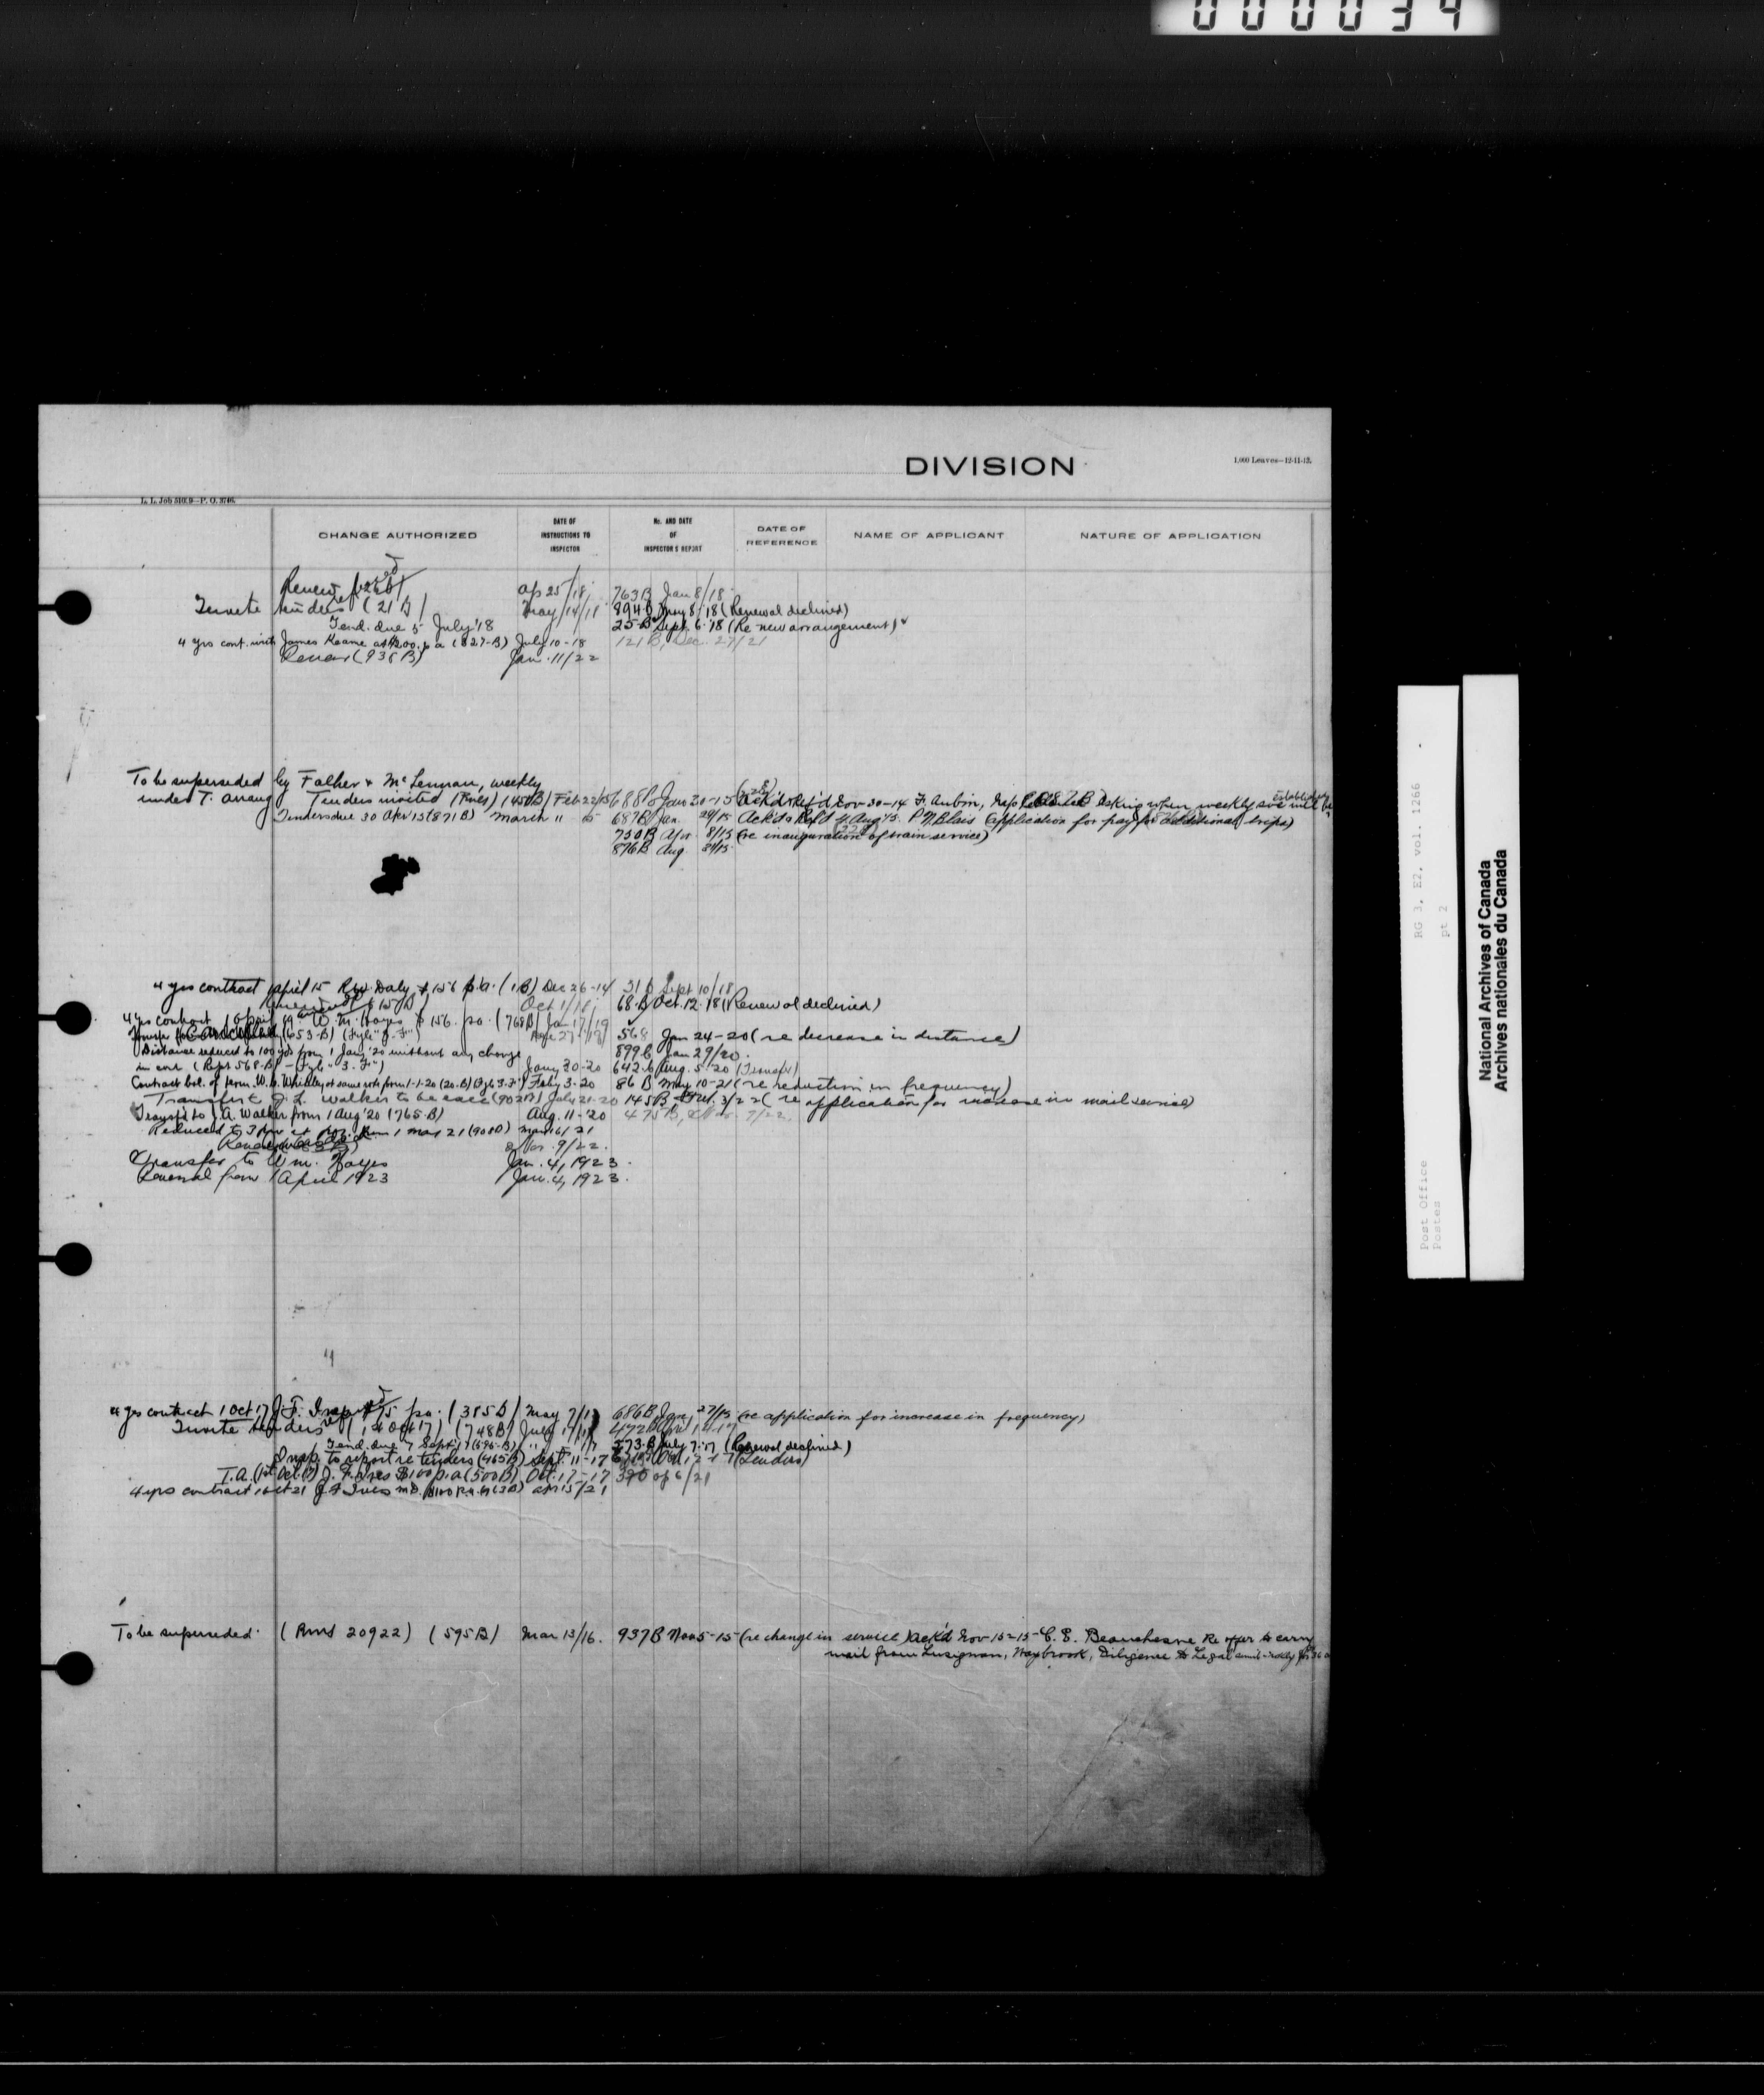 000034
DIVISION
1,000 Leaves—12-11-13.
L. L. Job 51039—P. O. 3746.
CHANGE AUTHORIZED
DATE OF INSTRUCTIONS TO INSPECTOR
Nr. AND DATE OF INSPECTOR'S REPORT
DATE OF REFERENCE
NAME OF APPLICANT
NATURE OF APPLICATION
Renew Ap 25/18 763B Jan 8/18
Invite tenders (21 B) May 14/18 894B May 8/18 (Renewal declined)
Tend. due 5 July '18 25-B Sept. 6 '18 (Re new arrangement)
4 yrs cont. with James Keane at $200. p a (827-B) July 10-18 121 B, Dec. 27/21
Renew (938 B) Jan. 11/22
To be superseded by Falher & McLennan, weekly
under T. arrang Tenders invited (Rms) (450B) Feb 22/15 688B Jan 30-15 Ack'd & Ref'd Nov-30-14 F. Aubin, asking when weekly svc will be established
Tenders due 30 Apr 15 (871 B) March " 15 687B Jan. 29/15 Ack'd & Ref'd 4 Aug 15. P N Blais (application for pay for additional trips)
750B Apr. 8/15 (re inauguration of train service)
876B Aug. 31/15
4 yrs contract April 15 R.W. Daly $156 p.a. (1B) Dec 26-14 31 B Sept 10/18
Oct 1/18 68.B Oct. 12-18 (Renewal declined)
4 yrs contract 1 April 19 W. M. Hayes $156. pa. (768B) Jan 17/19
Cancelled (653-B) 568 Jan 24-20 (re decrease in distance)
Distance reduced to 100 yds from 1 Jany '20 without any change 899B Jan 29/20.
in cost (Rept 568-B) Jany 30-20 642.B Aug. 5-20 (Transfer)
Contract bal. of term. W. G. Whitley at same rate from 1-1-20 (20-B) Feby 3-20 86 B May 10-21 (re reduction in frequency)
Transfer to J. A. Walker to be made (902B) July 21-20 145B Feb. 3/22 (re application for increase in mail service)
Transf'd to J. A. Walker from 1 Aug '20 (765-B) Aug. 11-20 475B, Mar. 7/22
Reduced to from 1 Mar 21 (908B) Mar 16/21
Mar. 9/22.
Transfer to Wm. Hayes Jan. 4, 1923.
Renewal from 1 April 1923 Jan. 4, 1923.
4 yrs contract 1 Oct 17 J. F. Ives $75 pa. (385B) May 7/17 686B Jan. 27/15 (re application for increase in frequency)
Invite tenders (748B) July 17/17
Tend. due 7 Sept 17 (595-B) " 573.B July 7-17 (Renewal declined)
Insp. to report re tenders (465B) Sept. 11-17 (Tenders)
T.A. (1st Oct. 17) J. F. Ives $100 p.a (500B) Oct. 17-17 370 ap 6/21
4 yrs contract 1 Oct 21 J. F. Ives apr 15/21
To be superseded. (Rms 20922) (595B) Mar 13/16. 937B Nov 5-15 (re change in service) Ack'd Nov-15-15 C. E. Beauchesne Re offer to carry
mail from Lusignan, Waybrook, Diligence to Legal semi-weekly
RG 3, E2, vol. 1266
pt 2
Post Office
Postes
National Archives of Canada
Archives nationales du Canada